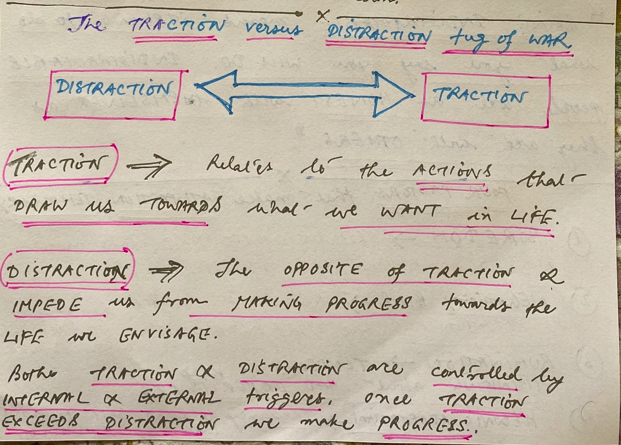 The TRACTION versus DISTRACTION tug of WAR
DISTRACTION
TRACTION
TRACTION ⇒ Relates to the ACTIONS that
DRAW us TOWARDS what we WANT in LIFE.
DISTRACTION ⇒ The OPPOSITE of TRACTION &
IMPEDE us from MAKING PROGRESS towards the
LIFE we ENVISAGE.
Both TRACTION & DISTRACTION are controlled by
INTERNAL & EXTERNAL triggers. once TRACTION
EXCEEDS DISTRACTION we make PROGRESS.